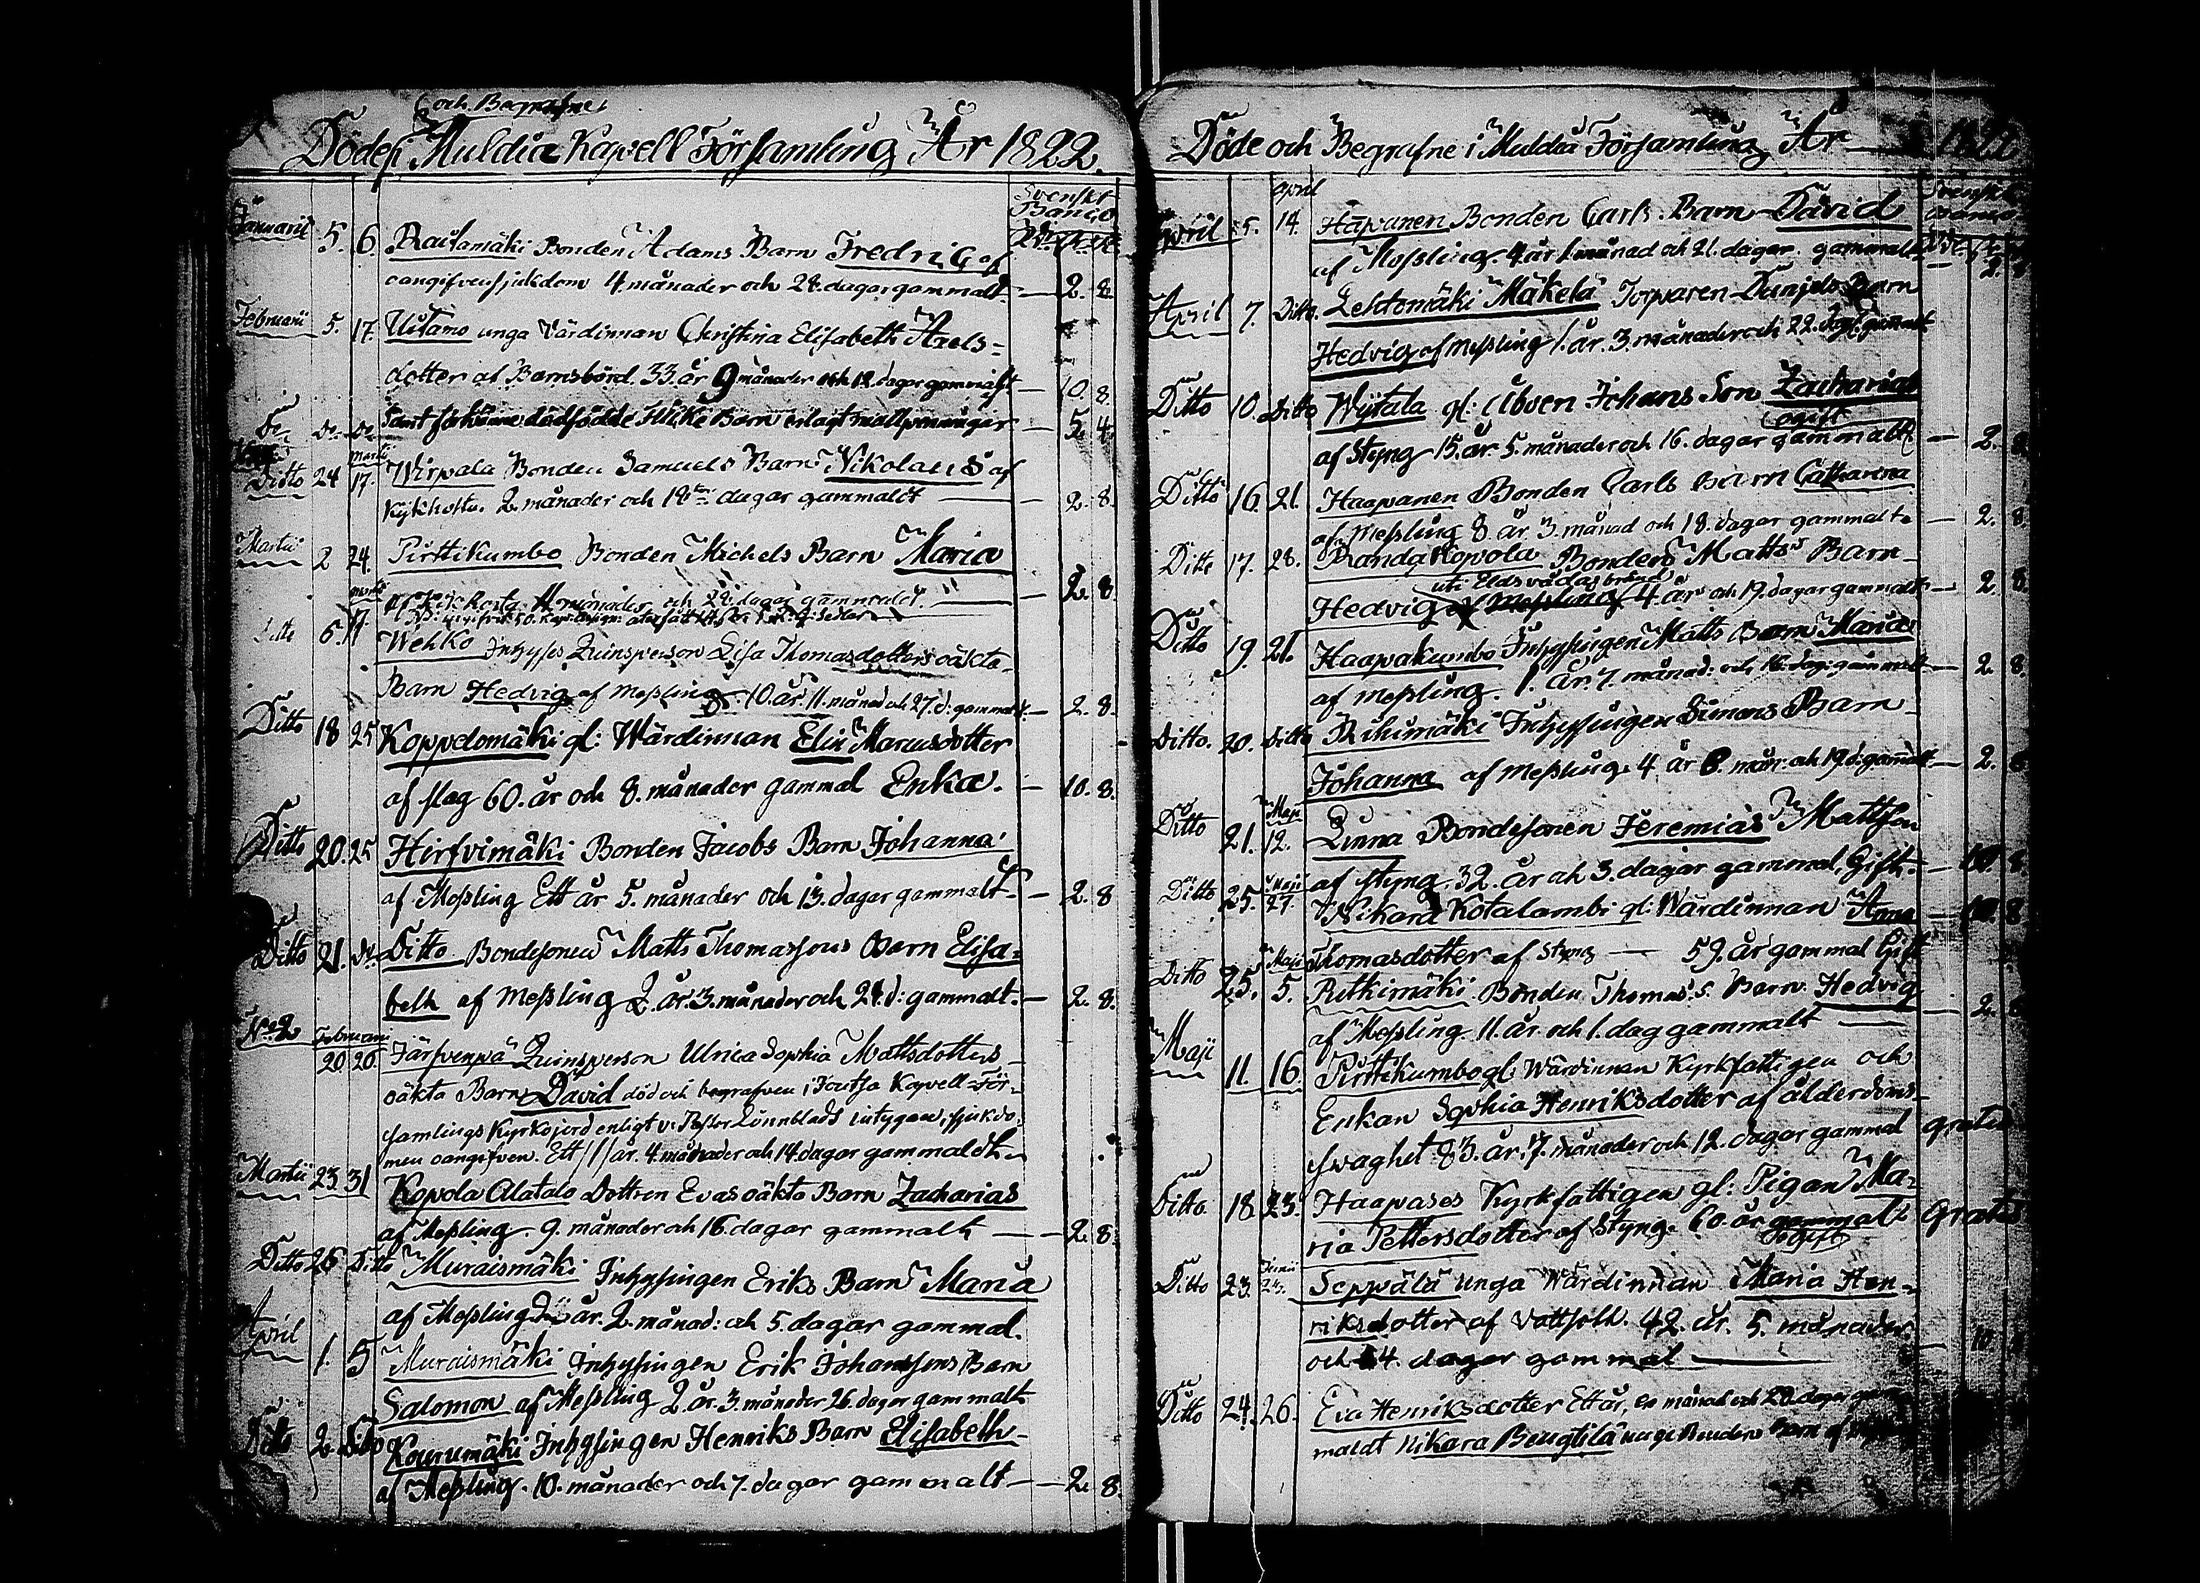 och Begrafne
Döde i Muldia Kapell Församling År 1822.
Svenskt
Banco
Januarii 5. 6. Rautamäki Bonden Adams Barn Fredric af
oangifven sjukdom 4 månader och 28. dagar gammalt — 2. 8.
Februarii 5. 17. Uitamo unga Värdinnan Christina Elisabeth Axels-
dotter af Barnsbörd. 33. år 9 månader och 12. dagar gammalt — 10. 8.
Do Do Do Samt förhänne dödfödde Barn erlagt mullpenningar — 5. 4.
Martii
Ditto 24 17. Wirpala Bonden Samuels Barn Nikolaus af
Kykhosta. 2. månader och 18 dagar gammaldt — 2. 8.
Martii 2 24. Pirttikumbo Bonden Michels Barn Maria
af Kikhosta. månader och 28. dagar gammaldt. — 2. 8.
Ditto 6. 17. Wehko Inhyses Quinsperson Lisa Thomasdotters oäkta
Barn Hedvig af Messling. 10. år. 11. månad och 27. d: gammalt. — 2. 8.
Ditto 18 25 Koppelomäki gl: Wärdinnan Elin Marcusdotter
af slag 60. år och 8. månader gammal Enka. — 10. 8.
Ditto 20. 25 Hirfvimäki Bonden Jacobs Barn Johanna
af Messling Ett år 5. månader och 13. dagar gammalt — 2. 8
Ditto 21. Do Ditto Bondesonen Matts Thomassons Barn Elisa-
beth af Messling 2. år. 3. månader och 24. d: gammalt. — 2. 8.
No 2 Februarii
20. 26. Järfvenpä Quinsperson Ulrica Sophia Mattsdotters
oäkta Barn David död och begrafven i Joutsa Kapell-För-
samlings Kyrkojord enligt v: Pastor Lönnblads intygan, sjukdo-
men oangifven. Ett /1/ år. 4. månader och 14 dagar gammaldt
Martii 23 31 Kopola Alatalo Dottren Evas oäkta Barn Zacharias
af Messling. 9. månader och 16. dagar gammalt — 2. 8.
Ditto 26 Ditto Muraismäki Inhysingen Eriks Barn Maria
af Messling år. 2. månad: och 5. dagar gammal.
April 1. 5 Muraismäki Inhysingen Erik Johanssons Barn
Salomon af Messling 2. år. 3. månader 26. dagar gammalt
Ditto 2. Ditto Kouvumäki Inhysingen Henriks Barn Elisabeth
af Messling. 10. månader och 7. dagar gammalt — 2. 8.
Döde och Begrafne i Muldia Församling År 1822
April
April 5. 14. Hapanen Bonden Carls Barn David
af Messling. 4. år 1. månad och 21. dagar gammalt 2. 8
April 7. Ditto. Lehtomäki Mäkelä Torparen Danjels Barn
Hedvig af Messling 1. år. 3. månader och 22. dag: gammalt
Ditto 10. Ditto Wijtala gl: Åboen Johans Son Zacharias
ogift
af Styng 15. år. 5. månader och 16. dagar gammalt — 2. 8.
Ditto 16. 21. Haapanen Bonden Carls Barn Catharina
af Messling 8 år 3. månad och 18. dagar gammalt. — 2. 8.
Ditto 17. 28. Randa Kopola Bonden Matts Barn
uti Elds våda bränd
Hedvig af Messling 4. år och 19. dagar gammalt — 2. 8.
Ditto 19. 21. Haapakumbo Inhysingen Matts Barn Maria
af Messling. 1. år. 7. månad: och 16. dag: gammalt — 2. 8.
Ditto. 20. Ditto Riihimäki Inhysingen Simons Barn
Johanna af Messling. 4 år 8. mån: och 19. d: gammalt — 2. 8
Maji
Ditto 21. 12. Linna Bondesonen Jeremias Mattson
af styng. 32. år och 3. dagar gammal, Gift. — 10. 8.
Maji
Ditto 25. 27. Nikara Kotalambi gl: Wärdinnan Anna — 10. 8
Thomasdotter af Styng — 59. år gammal Gift
Maji
Ditto 25. 5. Rutkimäki Bonden Thomas's Barn Hedvig
af Messling. 11. år och 1. dag gammalt — 2. 8
Maji 11. 16. Pirttikumbo gl: Wärdinnan Kyrkfattigen och
Enkan Sophia Henriksdotter af ålderdoms-
svaghet 83. år. 7. månader och 12. dagar gammal gratis
Ditto 18. 23. Haapases Kyrkfattigen gl: Pigan Ma-
ria Pettersdotter af Styng. 60. år gammal Gratis
Ogift
Junii
Ditto 23. 23. Seppälä unga Wärdinnan Maria Hen-
riksdotter af Vattsoth. 42. år. 5. månader
och 4. dagar gammal — 10.
Ditto 24. 26. Eva Henriksdotter Ett år, en månad och 20. dagar gam-
maldt Nikara Bengtilä unga Bondens Barn af